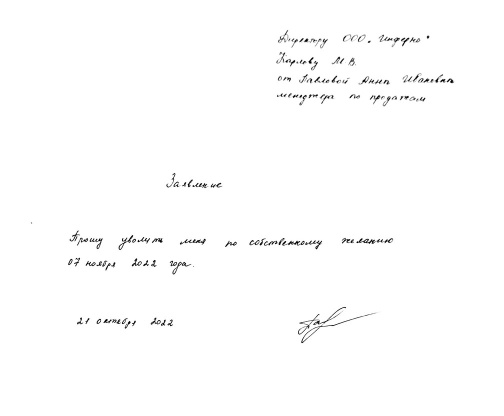 Директору ООО „Инферно"
Карлову М.В.
от Павловой Анны Ивановны
менеджера по продажам
Заявление
Прошу уволить меня по собственному желанию
07 ноября 2022 года.
21 октября 2022